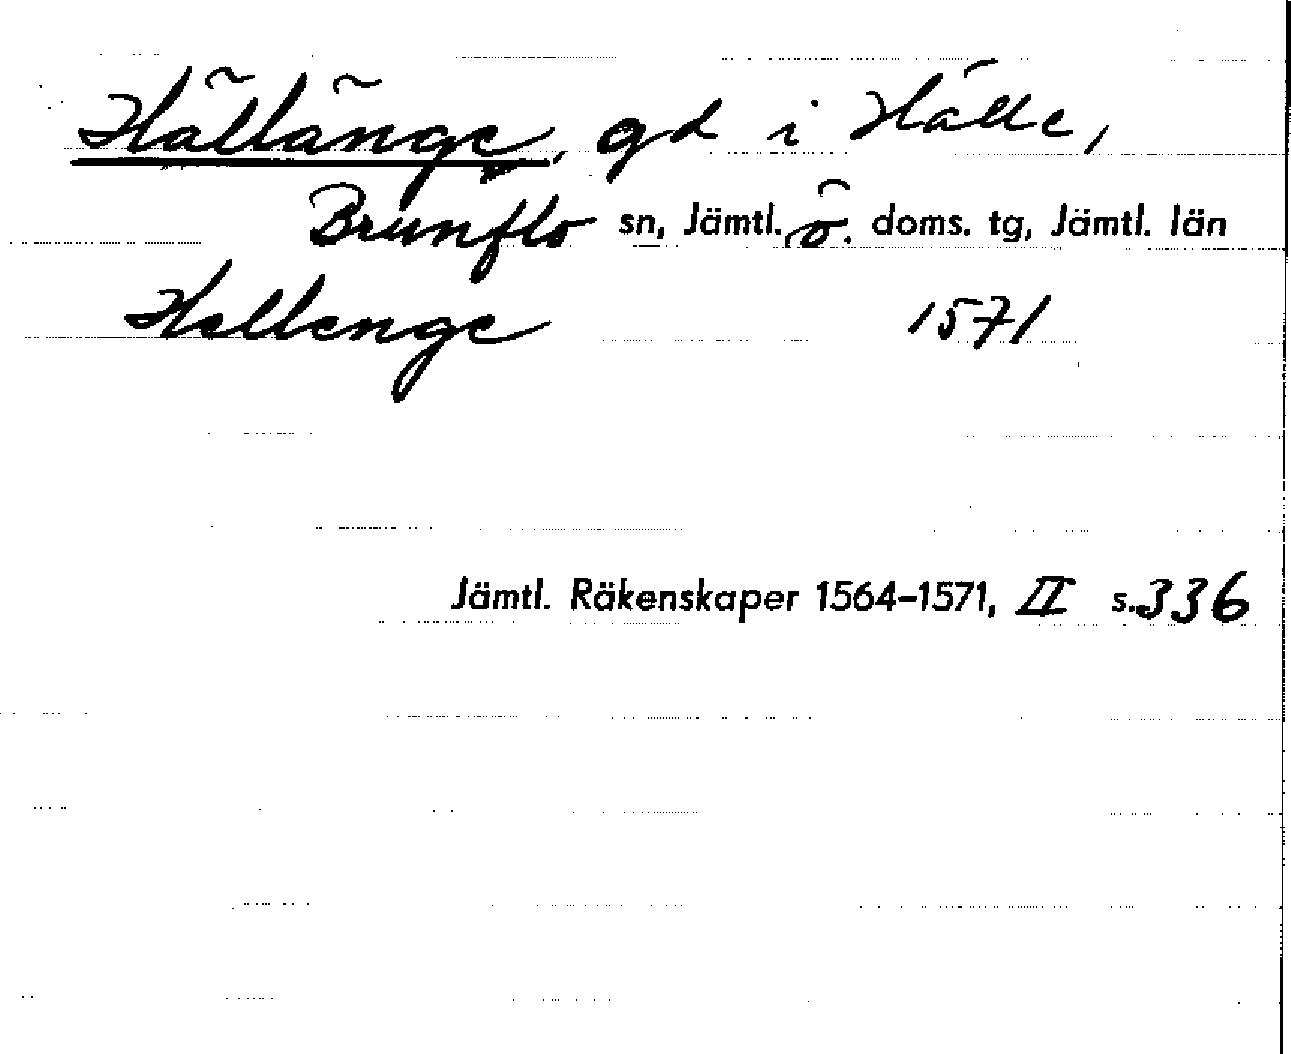 Hällänge, gd i Hälle,
Brunflo sn, Jämtl. ö. doms. tg, Jämtl. län
Hellenge 1571
Jämtl. Räkenskaper 1564–1571, II s. 336